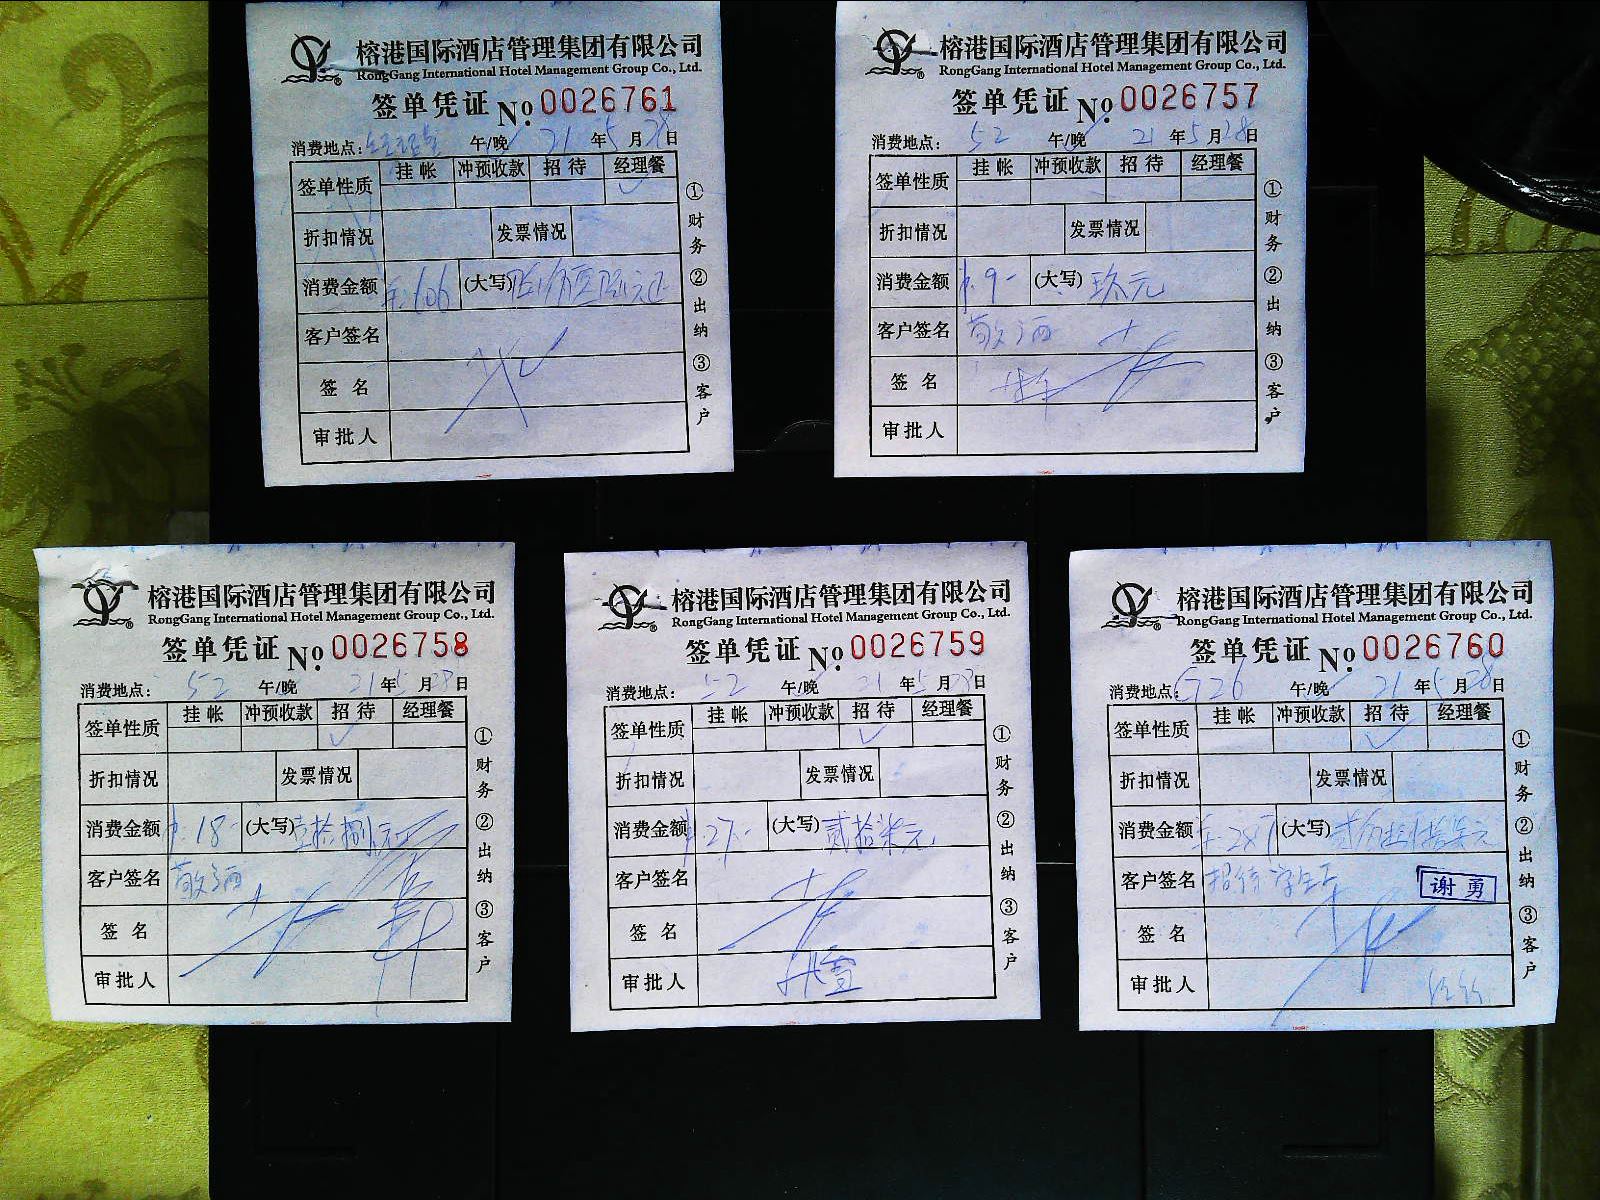 榕港国际酒店管理集团有限公司
RongGang International Hotel Management Group Co., Ltd.
签单凭证 No. 0026761
消费地点: 午/晚 21年5月28日
签单性质 挂帐 冲预收款 招待 经理餐
折扣情况 发票情况
消费金额 606 (大写)
客户签名
签名
审批人
①财务 ②出纳 ③客户
榕港国际酒店管理集团有限公司
RongGang International Hotel Management Group Co., Ltd.
签单凭证 No. 0026757
消费地点: 52 午/晚 21年5月28日
签单性质 挂帐 冲预收款 招待 经理餐
折扣情况 发票情况
消费金额 9- (大写) 玖元
客户签名 敬酒
签名
审批人
①财务 ②出纳 ③客户
榕港国际酒店管理集团有限公司
RongGang International Hotel Management Group Co., Ltd.
签单凭证 No. 0026758
消费地点: 52 午/晚 21年5月28日
签单性质 挂帐 冲预收款 招待 经理餐
折扣情况 发票情况
消费金额 18- (大写) 壹拾捌元正
客户签名 敬酒
签名
审批人
①财务 ②出纳 ③客户
榕港国际酒店管理集团有限公司
RongGang International Hotel Management Group Co., Ltd.
签单凭证 No. 0026759
消费地点: 52 午/晚 21年5月28日
签单性质 挂帐 冲预收款 招待 经理餐
折扣情况 发票情况
消费金额 27- (大写) 贰拾柒元
客户签名
签名
审批人
①财务 ②出纳 ③客户
榕港国际酒店管理集团有限公司
RongGang International Hotel Management Group Co., Ltd.
签单凭证 No. 0026760
消费地点: 午/晚 21年5月28日
签单性质 挂帐 冲预收款 招待 经理餐
折扣情况 发票情况
消费金额 287 (大写) 贰佰捌拾柒元
客户签名 招待 谢勇
签名
审批人
①财务 ②出纳 ③客户